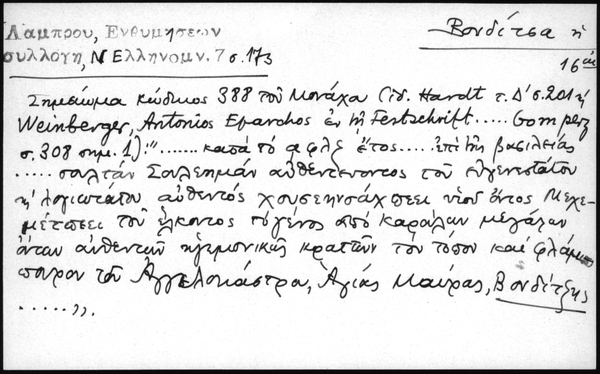 Λάμπρου, Ενθυμήσεων
συλλογή, Ν Ελληνομν. 7 σ. 173
Βονδίτσα ἡ
16 αἰ
Σημείωμα κώδικος 388 τοῦ Μονάχου (ἰδ. Hardt τ. Δ' σ. 201 ἡ
Weinberger, Antonios Eparchos ἐν τῇ Festschrift ..... Gomperz
σ. 308 σημ. 1): "....... κατὰ τὸ αφλς ἔτος ..... ἐπὶ τῆς βασιλείας
..... σουλτὰν Σουλεημὰν αὐθεντεύοντος τοῦ εὐγενεστάτου
κ' λογιωτάτου αὐθεντὸς χουσεηνσάχ πεει νέου ὄντος Μεχε-
μέτπεει τοῦ ἕλκοντος τὸ γένος ἀπὸ καραλὰν μεγάλων
αὐθεντῶν ἡγεμονικῶς κρατῶν τὸν τόπον καὶ φλάμ-
πουρον τοῦ Ἀγγελοκάστρου, Ἁγίας Μαύρας, Βονδίτζης
.....".